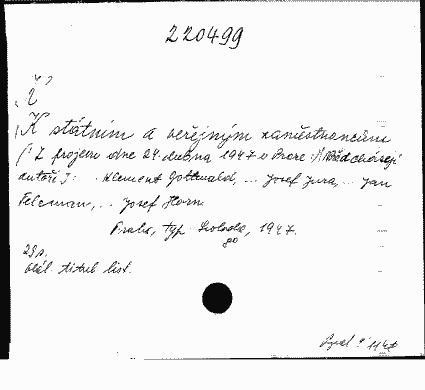 220499
K státním a veřejným zaměstnancům
/: Z projevů dne 24. dubna 1947 v Praze :/
autoři]: Klement Gottwald, ... Josef Jura, ... Jan
Feleman, ... Josef Horn.
Praha, typ. Svoboda, 1947.
29 s.
Obál. titul. list.
1147